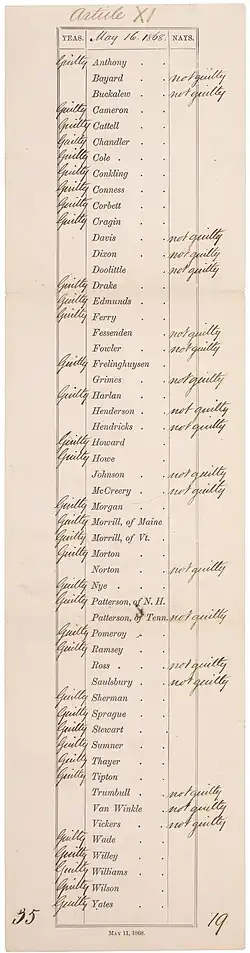 Article XI
YEAS. May 16. 1868. NAYS.
Guilty Anthony . .
Bayard . . not guilty
Buckalew . . not guilty
Guilty Cameron . .
Guilty Cattell . .
Guilty Chandler . .
Guilty Cole . . .
Guilty Conkling . .
Guilty Conness . .
Guilty Corbett . .
Guilty Cragin . .
Davis . . not guilty
Dixon . . not guilty
Doolittle . . not guilty
Guilty Drake . .
Guilty Edmunds . .
Guilty Ferry . .
Fessenden . not guilty
Fowler . . not guilty
Guilty Frelinghuysen .
Grimes . . not guilty
Guilty Harlan . .
Henderson . . not guilty
Hendricks . . not guilty
Guilty Howard . .
Guilty Howe . .
Johnson . . not guilty
McCreery . . not guilty
Guilty Morgan . .
Guilty Morrill, of Maine
Guilty Morrill, of Vt. .
Guilty Morton . .
Norton . . not guilty
Guilty Nye . . .
Guilty Patterson, of N. H.
Patterson, of Tenn. not guilty
Guilty Pomeroy . .
Guilty Ramsey . .
Ross . . . not guilty
Saulsbury . . not guilty
Guilty Sherman . .
Guilty Sprague . .
Guilty Stewart . .
Guilty Sumner . .
Guilty Thayer . .
Guilty Tipton . .
Trumbull . . not guilty
Van Winkle . not guilty
Vickers . . not guilty
Guilty Wade . .
Guilty Willey . .
Guilty Williams . .
Guilty Wilson . .
Guilty Yates . .
35 19
MAY 11, 1868.